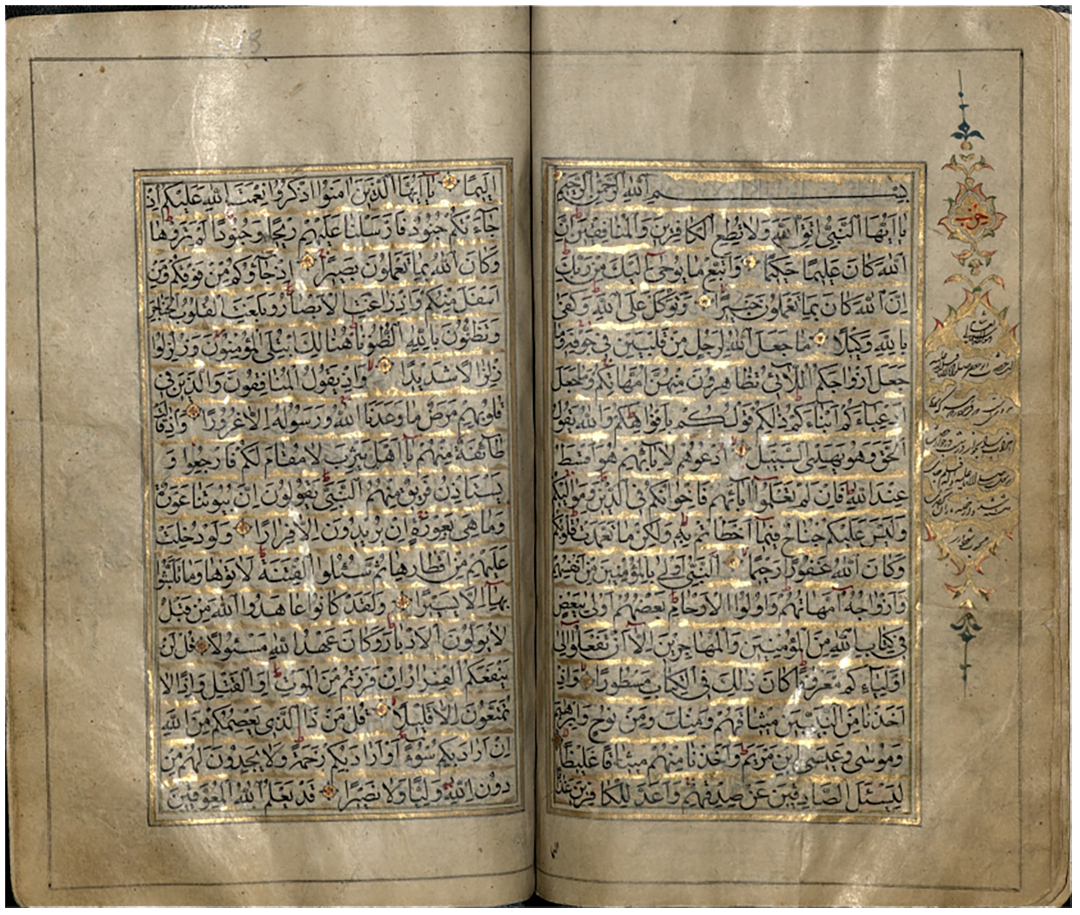 بِسْمِ اللهِ الرَّحْمٰنِ الرَّحِيْمِ
يا اَيُّهَا النَّبِيُّ اتَّقِ اللهَ وَلَا تُطِعِ الْكَافِرِيْنَ وَالْمُنَافِقِيْنَ اِنَّ
اللهَ كَانَ عَلِيْمًا حَكِيْمًا وَاتَّبِعْ مَا يُوْحٰى اِلَيْكَ مِنْ رَبِّكَ
اِنَّ اللهَ كَانَ بِمَا تَعْمَلُوْنَ خَبِيْرًا وَتَوَكَّلْ عَلَى اللهِ وَكَفٰى
بِاللهِ وَكِيْلًا مَا جَعَلَ اللهُ لِرَجُلٍ مِنْ قَلْبَيْنِ فِيْ جَوْفِهٖ وَمَا
جَعَلَ اَزْوَاجَكُمُ اللَّائِيْ تُظَاهِرُوْنَ مِنْهُنَّ اُمَّهَاتِكُمْ وَمَا جَعَلَ
اَدْعِيَاءَكُمْ اَبْنَاءَكُمْ ذٰلِكُمْ قَوْلُكُمْ بِاَفْوَاهِكُمْ وَاللهُ يَقُوْلُ
الْحَقَّ وَهُوَ يَهْدِي السَّبِيْلَ اُدْعُوْهُمْ لِاٰبَائِهِمْ هُوَ اَقْسَطُ
عِنْدَ اللهِ فَاِنْ لَمْ تَعْلَمُوْا اٰبَاءَهُمْ فَاِخْوَانُكُمْ فِي الدِّيْنِ وَمَوَالِيْكُمْ
وَلَيْسَ عَلَيْكُمْ جُنَاحٌ فِيْمَا اَخْطَاْتُمْ بِهٖ وَلٰكِنْ مَا تَعَمَّدَتْ قُلُوْبُكُمْ
وَكَانَ اللهُ غَفُوْرًا رَحِيْمًا اَلنَّبِيُّ اَوْلٰى بِالْمُؤْمِنِيْنَ مِنْ اَنْفُسِهِمْ
وَاَزْوَاجُهُ اُمَّهَاتُهُمْ وَاُولُوا الْاَرْحَامِ بَعْضُهُمْ اَوْلٰى بِبَعْضٍ
فِيْ كِتَابِ اللهِ مِنَ الْمُؤْمِنِيْنَ وَالْمُهَاجِرِيْنَ اِلَّا اَنْ تَفْعَلُوْا اِلٰى
اَوْلِيَاءِكُمْ مَعْرُوْفًا كَانَ ذٰلِكَ فِي الْكِتَابِ مَسْطُوْرًا وَاِذْ
اَخَذْنَا مِنَ النَّبِيِّيْنَ مِيْثَاقَهُمْ وَمِنْكَ وَمِنْ نُوْحٍ وَاِبْرٰهِيْمَ
وَمُوْسٰى وَعِيْسَى ابْنِ مَرْيَمَ وَاَخَذْنَا مِنْهُمْ مِيْثَاقًا غَلِيْظًا
لِيَسْئَلَ الصَّادِقِيْنَ عَنْ صِدْقِهِمْ وَاَعَدَّ لِلْكَافِرِيْنَ عَذَابًا
اَلِيْمًا يا اَيُّهَا الَّذِيْنَ اٰمَنُوا اذْكُرُوْا نِعْمَتَ اللهِ عَلَيْكُمْ اِذْ
جَاءَتْكُمْ جُنُوْدٌ فَاَرْسَلْنَا عَلَيْهِمْ رِيْحًا وَجُنُوْدًا لَمْ تَرَوْهَا
وَكَانَ اللهُ بِمَا تَعْمَلُوْنَ بَصِيْرًا اِذْ جَاؤُكُمْ مِنْ فَوْقِكُمْ وَمِنْ
اَسْفَلَ مِنْكُمْ وَاِذْ زَاغَتِ الْاَبْصَارُ وَبَلَغَتِ الْقُلُوْبُ الْحَنَاجِرَ
وَتَظُنُّوْنَ بِاللهِ الظُّنُوْنَا هُنَالِكَ ابْتُلِيَ الْمُؤْمِنُوْنَ وَزُلْزِلُوْا
زِلْزَالًا شَدِيْدًا وَاِذْ يَقُوْلُ الْمُنَافِقُوْنَ وَالَّذِيْنَ فِيْ
قُلُوْبِهِمْ مَرَضٌ مَا وَعَدَنَا اللهُ وَرَسُوْلُهُ اِلَّا غُرُوْرًا وَاِذْ قَالَتْ
طَائِفَةٌ مِنْهُمْ يا اَهْلَ يَثْرِبَ لَا مُقَامَ لَكُمْ فَارْجِعُوْا وَ
يَسْتَاْذِنُ فَرِيْقٌ مِنْهُمُ النَّبِيَّ يَقُوْلُوْنَ اِنَّ بُيُوْتَنَا عَوْرَةٌ
وَمَا هِيَ بِعَوْرَةٍ اِنْ يُرِيْدُوْنَ اِلَّا فِرَارًا وَلَوْ دُخِلَتْ
عَلَيْهِمْ مِنْ اَقْطَارِهَا ثُمَّ سُئِلُوا الْفِتْنَةَ لَاٰتَوْهَا وَمَا تَلَبَّثُوْا
بِهَا اِلَّا يَسِيْرًا وَلَقَدْ كَانُوْا عَاهَدُوا اللهَ مِنْ قَبْلُ
لَا يُوَلُّوْنَ الْاَدْبَارَ وَكَانَ عَهْدُ اللهِ مَسْئُوْلًا قُلْ لَنْ
يَنْفَعَكُمُ الْفِرَارُ اِنْ فَرَرْتُمْ مِنَ الْمَوْتِ اَوِ الْقَتْلِ وَاِذًا لَا
تُمَتَّعُوْنَ اِلَّا قَلِيْلًا قُلْ مَنْ ذَا الَّذِيْ يَعْصِمُكُمْ مِنَ اللهِ
اِنْ اَرَادَ بِكُمْ سُوْءًا اَوْ اَرَادَ بِكُمْ رَحْمَةً وَلَا يَجِدُوْنَ لَهُمْ مِنْ
دُوْنِ اللهِ وَلِيًّا وَلَا نَصِيْرًا قَدْ يَعْلَمُ اللهُ الْمُعَوِّقِيْنَ
حزب